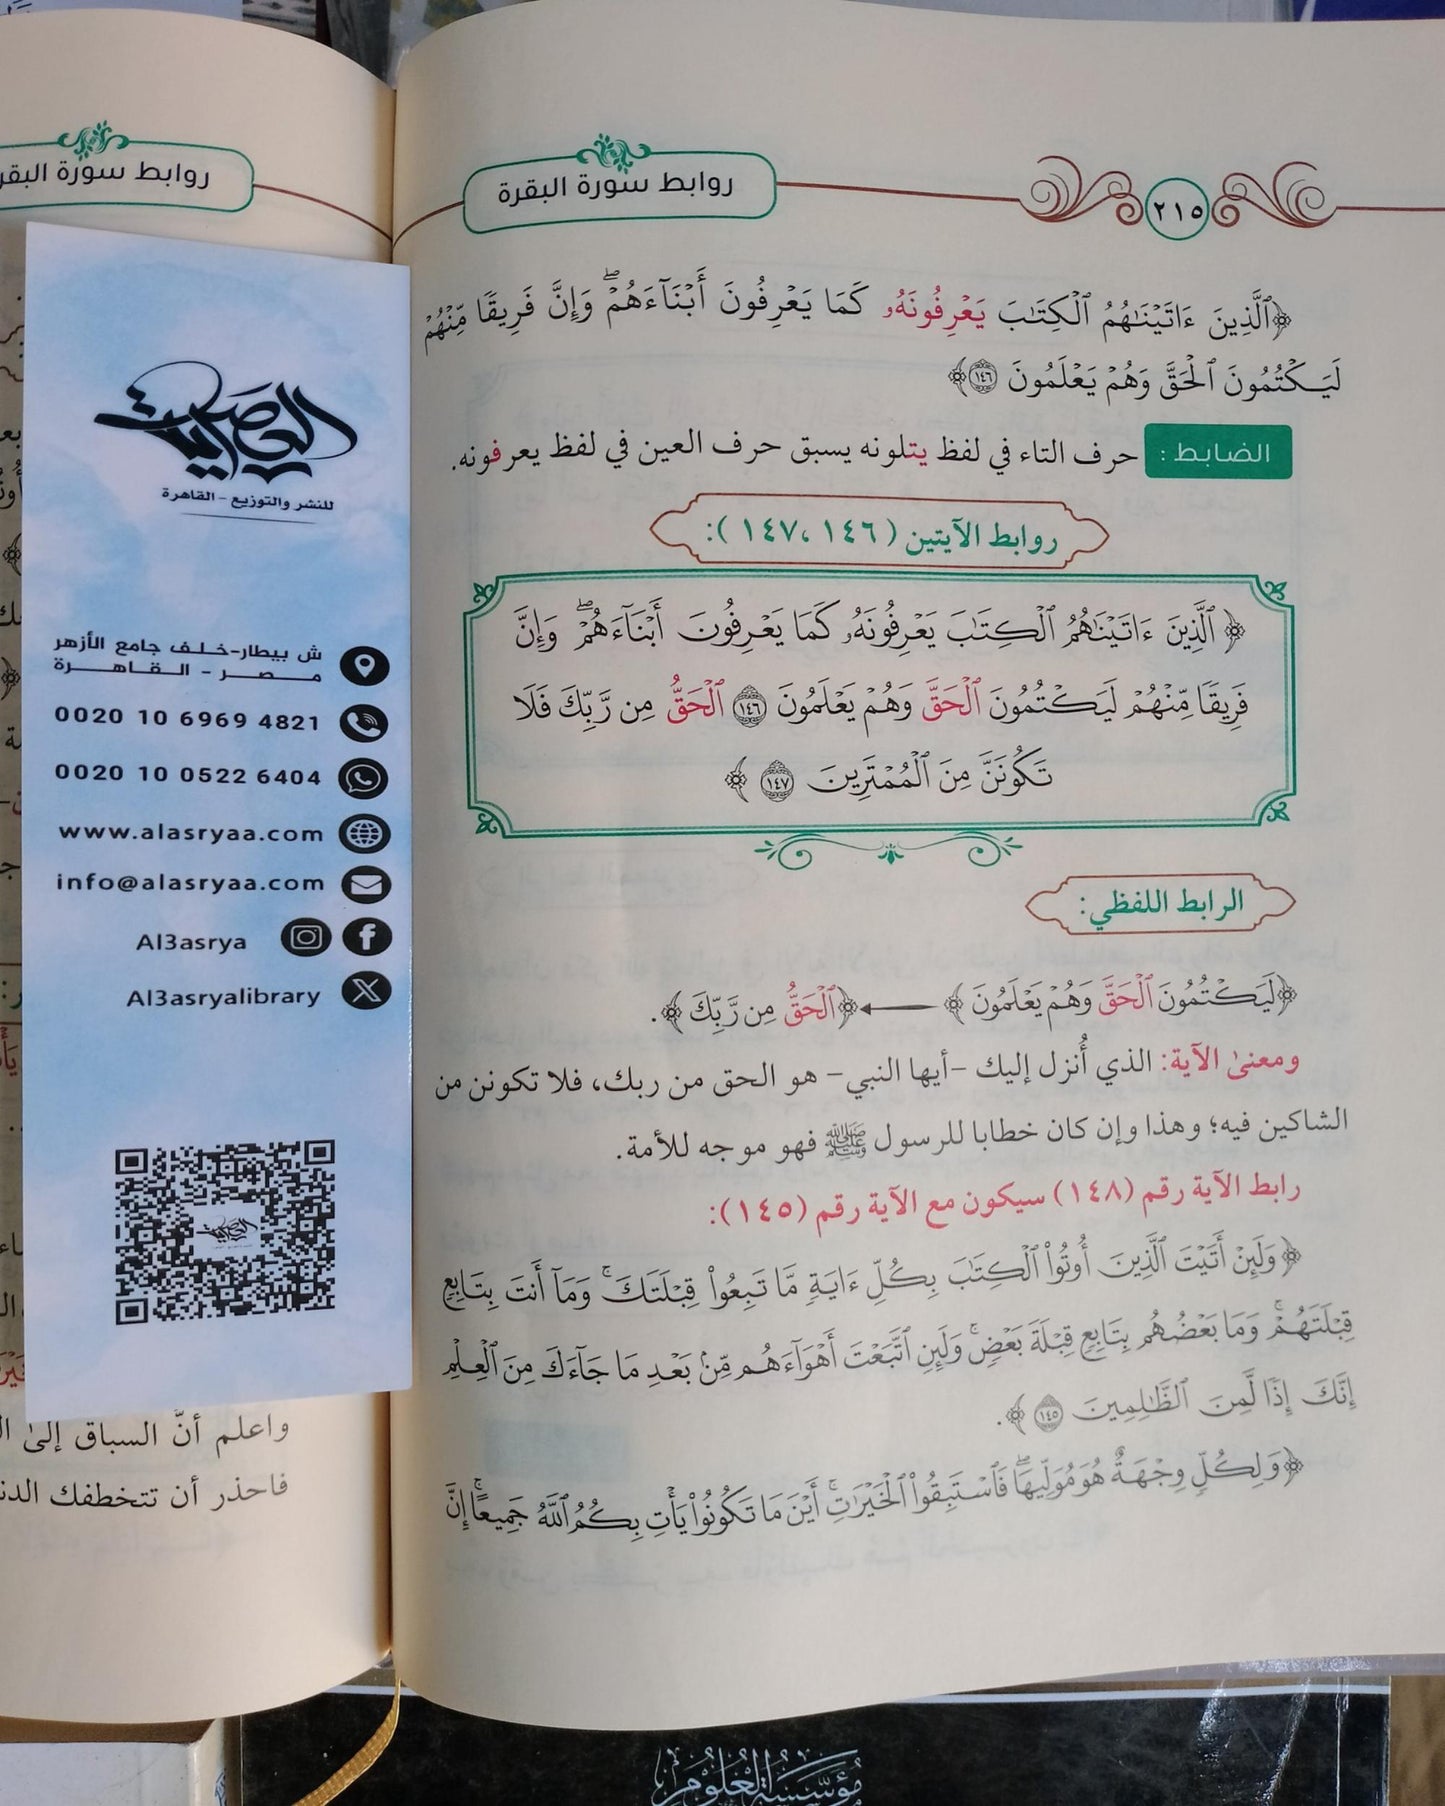 روابط سورة البقرة
٢١٥
﴿ٱلَّذِينَ ءَاتَيْنَٰهُمُ ٱلْكِتَٰبَ يَعْرِفُونَهُۥ كَمَا يَعْرِفُونَ أَبْنَآءَهُمْۖ وَإِنَّ فَرِيقًا مِّنْهُمْ
لَيَكْتُمُونَ ٱلْحَقَّ وَهُمْ يَعْلَمُونَ ١٤٦﴾
الضابط: حرف التاء في لفظ يتلونه يسبق حرف العين في لفظ يعرفونه.
روابط الآيتين (١٤٦، ١٤٧):
﴿ٱلَّذِينَ ءَاتَيْنَٰهُمُ ٱلْكِتَٰبَ يَعْرِفُونَهُۥ كَمَا يَعْرِفُونَ أَبْنَآءَهُمْۖ وَإِنَّ
فَرِيقًا مِّنْهُمْ لَيَكْتُمُونَ ٱلْحَقَّ وَهُمْ يَعْلَمُونَ ١٤٦ ٱلْحَقُّ مِن رَّبِّكَ فَلَا
تَكُونَنَّ مِنَ ٱلْمُمْتَرِينَ ١٤٧﴾
الرابط اللفظي:
﴿لَيَكْتُمُونَ ٱلْحَقَّ وَهُمْ يَعْلَمُونَ﴾ ← ﴿ٱلْحَقُّ مِن رَّبِّكَ﴾.
ومعنىٰ الآية: الذي أُنزل إليك -أيها النبي- هو الحق من ربك، فلا تكونن من
الشاكين فيه؛ وهذا وإن كان خطابا للرسول ﷺ فهو موجه للأمة.
رابط الآية رقم (١٤٨) سيكون مع الآية رقم (١٤٥):
﴿وَلَئِنْ أَتَيْتَ ٱلَّذِينَ أُوتُوا۟ ٱلْكِتَٰبَ بِكُلِّ ءَايَةٍ مَّا تَبِعُوا۟ قِبْلَتَكَۚ وَمَآ أَنتَ بِتَابِعٍ
قِبْلَتَهُمْۚ وَمَا بَعْضُهُم بِتَابِعٍ قِبْلَةَ بَعْضٍۚ وَلَئِنِ ٱتَّبَعْتَ أَهْوَآءَهُم مِّنۢ بَعْدِ مَا جَآءَكَ مِنَ ٱلْعِلْمِ
إِنَّكَ إِذًا لَّمِنَ ٱلظَّٰلِمِينَ ١٤٥﴾.
﴿وَلِكُلٍّ وِجْهَةٌ هُوَ مُوَلِّيهَاۖ فَٱسْتَبِقُوا۟ ٱلْخَيْرَٰتِۚ أَيْنَ مَا تَكُونُوا۟ يَأْتِ بِكُمُ ٱللَّهُ جَمِيعًاۚ إِنَّ
روابط سورة البقرة
العصرية
للنشر والتوزيع - القاهرة
ش بيطار-خلف جامع الأزهر
مصر - القاهرة
0020 10 6969 4821
0020 10 0522 6404
www.alasryaa.com
info@alasryaa.com
Al3asrya
Al3asryalibrary
واعلم أنَّ السباق إلىٰ
فاحذر أن تتخطفك
مؤسسة العلوم